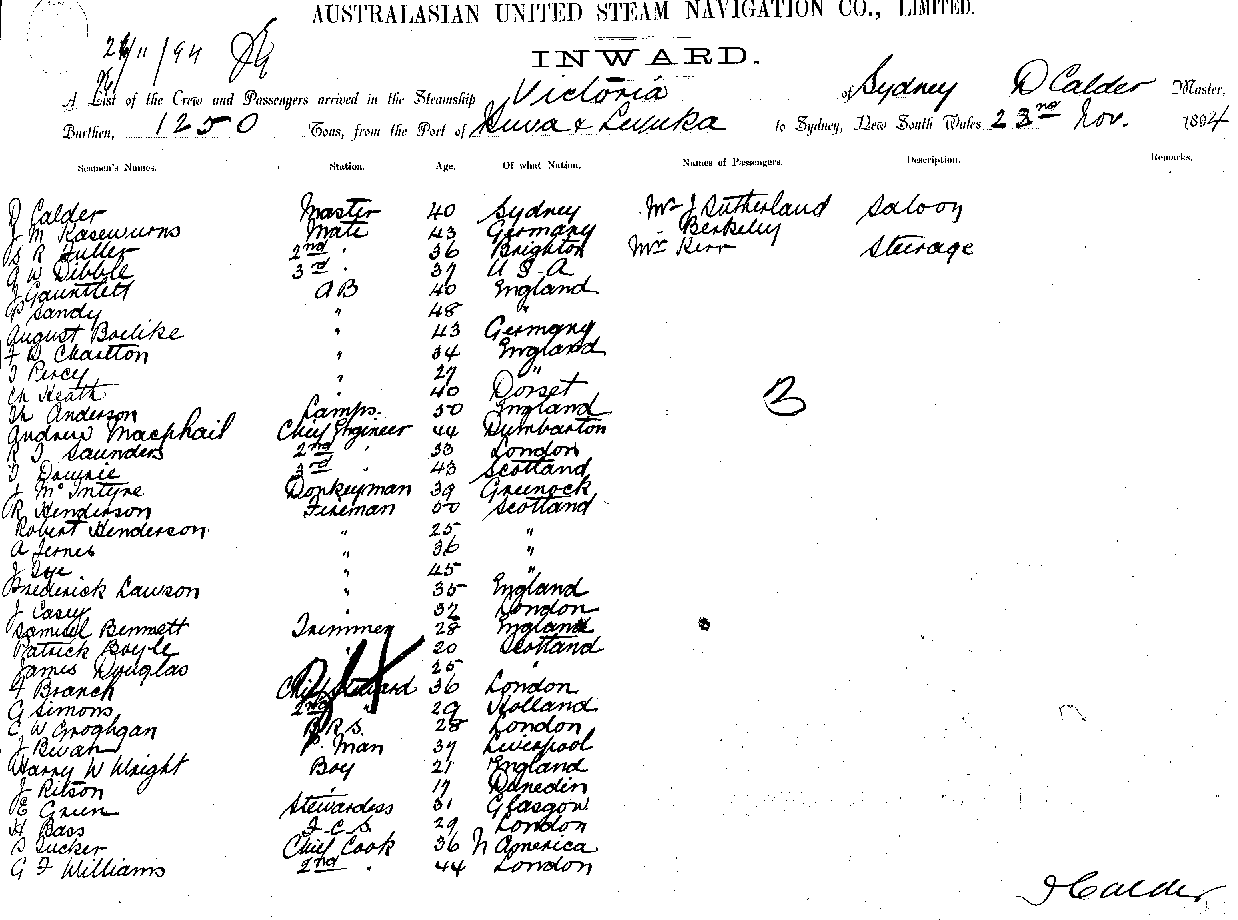 AUSTRALASIAN UNITED STEAM NAVIGATION CO., LIMITED.
INWARD.
A List of the Crew and Passengers arrived in the Steamship Victoria of Sydney D Calder Master,
Burthen, 1250 Tons, from the Port of Suva & Levuka to Sydney, New South Wales 23rd Nov. 1894
Seamen's Names. Station. Age. Of what Nation. Names of Passengers. Description. Remarks.
D Calder Master 40 Sydney Mr J Sutherland Saloon
J M Mate 43 Germany Berkeley
R Fuller 2nd " 36 Brighton Mr Kerr Steerage
W Dibble 3rd " 37 U S A
J Gauntlett AB 40 England
P Sandy " 48 "
August Boelike " 43 Germany
F D Charlton " 34 England
T Percy " 27 "
Ch Heath " 40 Dorset
Th Anderson Lamps. 50 England
Andrew Macphail Chief Engineer 44 Dumbarton
R J Saunders 2nd " 33 London
T Downie 3rd " 43 Scotland
J McIntyre Donkeyman 39 Greenock
R Henderson Fireman 50 Scotland
Robert Henderson " 25 "
A " 36 "
J " 45 "
Frederick Lawson " 35 England
J Casey " 32 London
Samuel Bennett Trimmer 28 England
Patrick Boyle " 20 Scotland
James Douglas 25 "
F Branch Chief Steward 36 London
G Simons 2nd " 29 Holland
C W Groghgan B.R.S. 28 London
J Bevan P. Man 37 Liverpool
Harry W Wright Boy 21 England
J Ritson 17 Dunedin
E Green Stewardess 31 Glasgow
H Bass F.C.S. 29 London
Tucker Chief Cook 36 N America
G F Williams 2nd " 44 London
D Calder